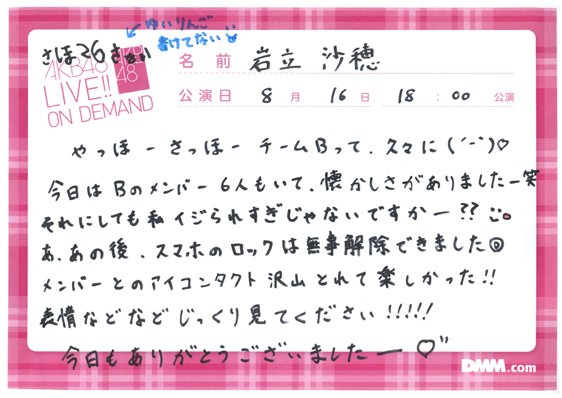 ゆいりんご
書けてない
さほ26
AKB48
LIVE!!
ON DEMAND
AKB
48
名前 岩立 沙穂
公演日 8月 16日 18:00公演
やっほーさっほー チームBって、久々に(´ｰ`)♡
今日はBのメンバー6人もいて、懐かしさがありましたー笑
それにしても私イジられすぎじゃないですかー??
あ、あの後、スマホのロックは無事解除できました◎
メンバーとのアイコンタクト沢山とれて楽しかった!!
表情などなどじっくり見てください!!!!!
今日もありがとうございましたー♡
DMM.com